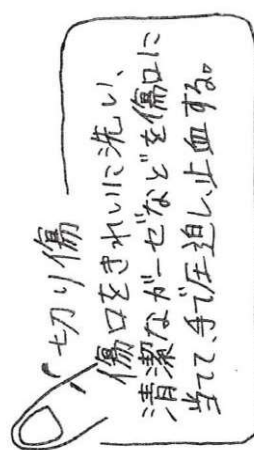 切り傷
傷口をきれいに洗い、
清潔なガーゼなどを傷口に
当て、手で圧迫し、止血する。